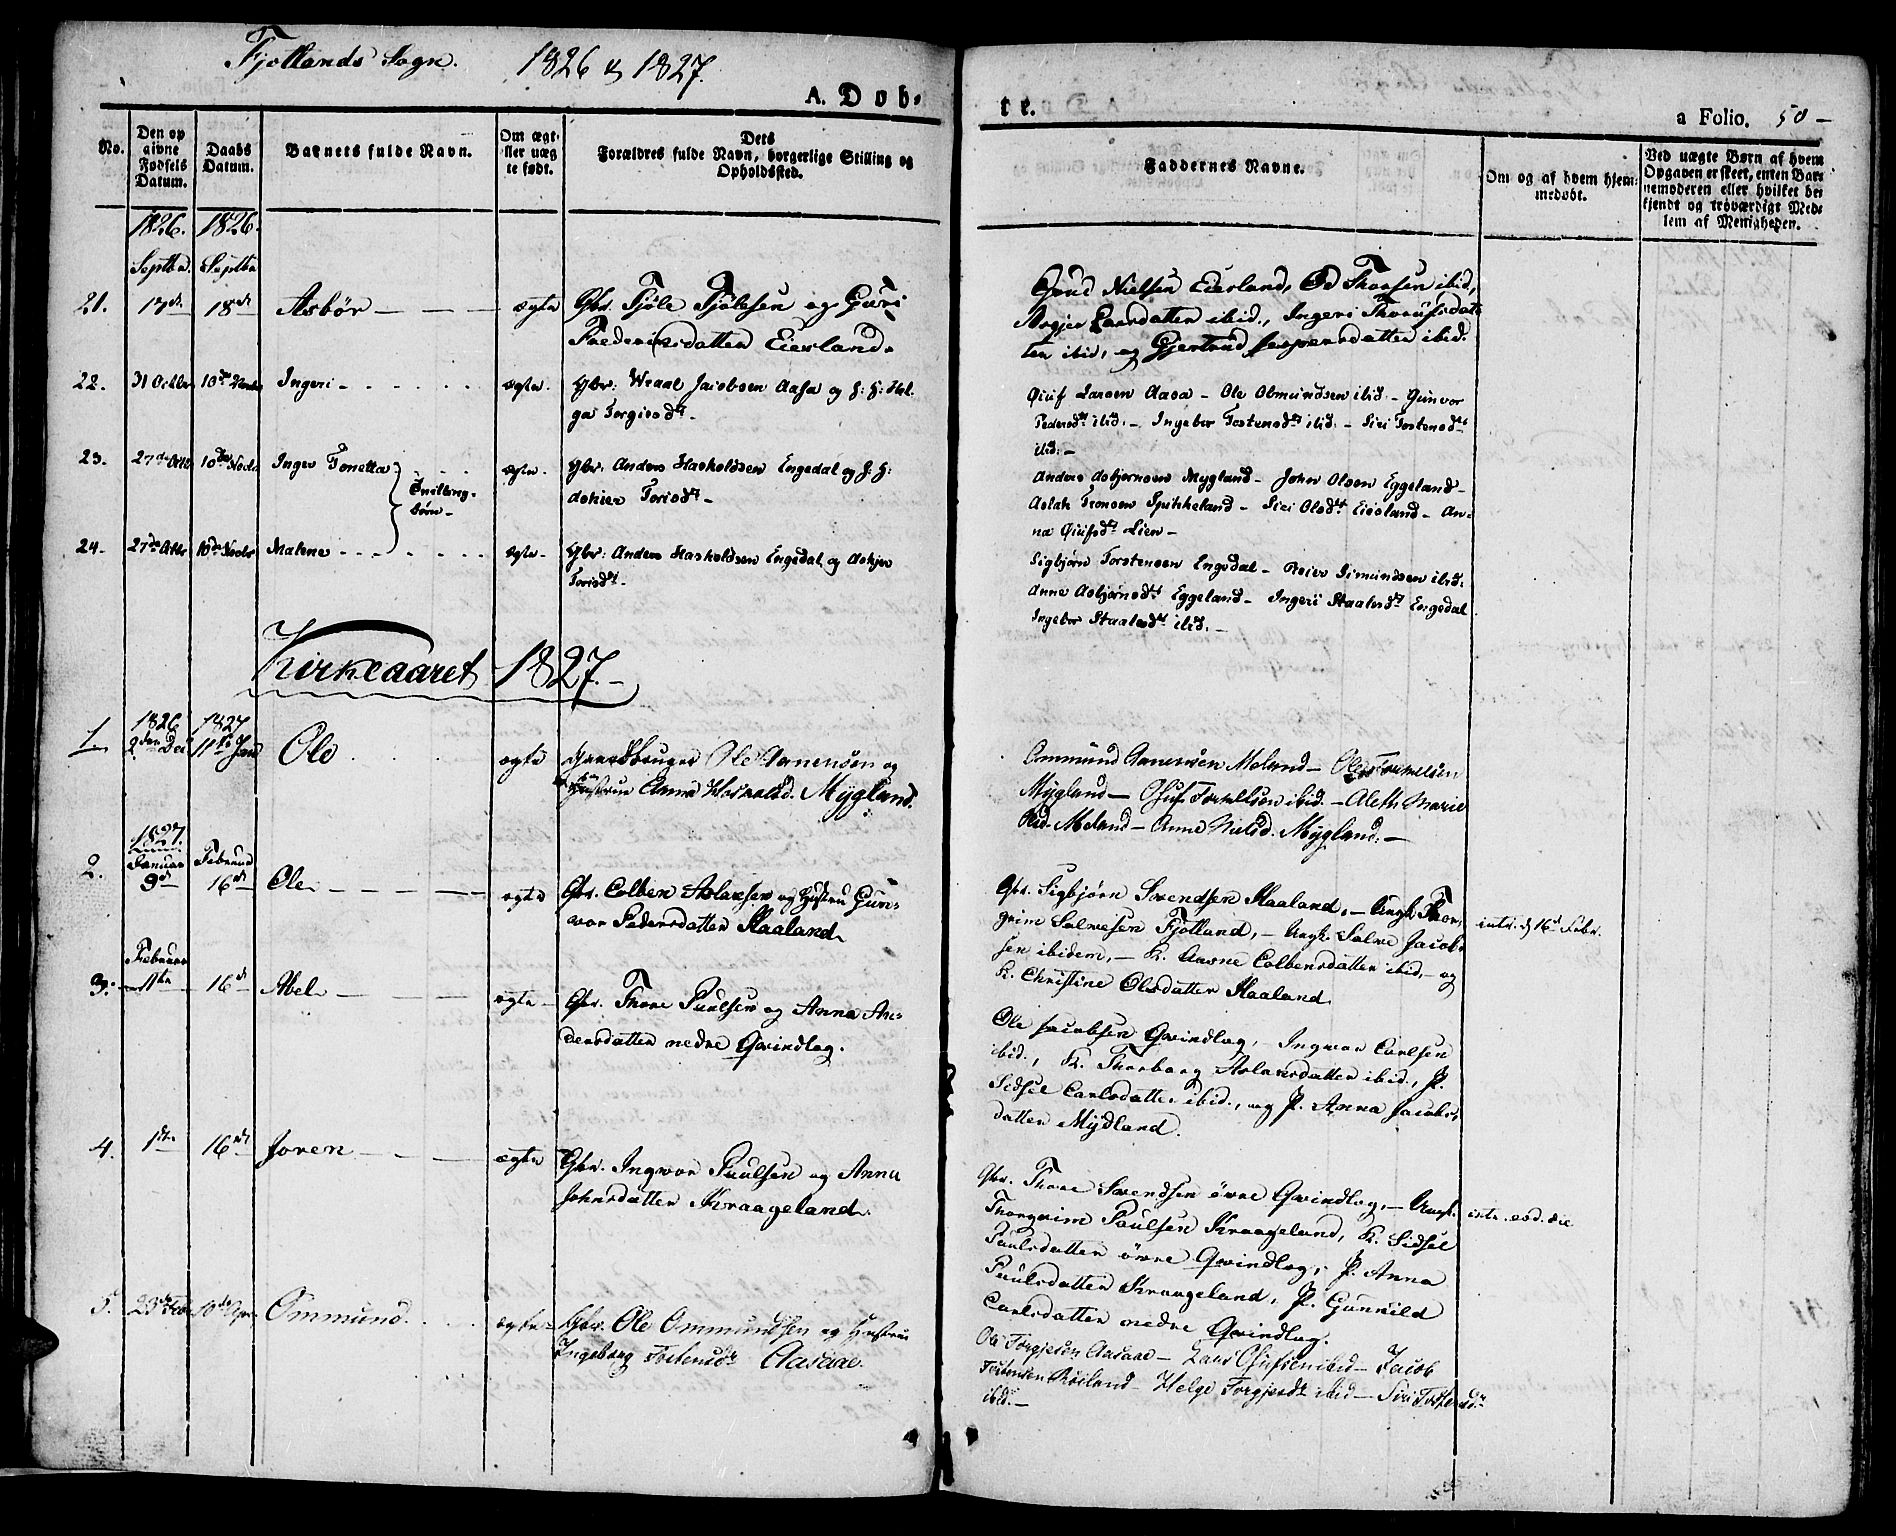 Fjotlands Sogn. 1826 & 1827.
A. Dob-
te.
a Folio. 50 -
No.
Den op
givne
Fødsels
Datum.
Daabs
Datum.
Barnets fulde Navn.
Om ægt-
eller uæg
te født.
Dets
Forældres fulde Navn, borgerlige Stilling og
Opholdssted.
Faddernes Navne.
Om og af hvem hjem-
medøbt.
Ved uægte Børn af hvem
Opgaven er skeet, enten Bar-
nemoderen eller hvilket be-
kjendt og troværdigt Med-
lem af Menigheden.
1826. 1826.
Septbr. Septbr
21. 18de Asbør - - - ægte Gbr. Tjøle Tjølesen og Guri
Fredericsdatter Eiesland.
Nielsen Eiesland, Od Thorsen ibid,
datter ibid., Ingeri
ter ibid, og Gjertrud Jespersdatter ibid.
22. 31 Octbr 10de Novbr Ingeri - ægte. Gbr: Wraal Jacobsen Aasa og H: H: Hel-
ga Torgiesdt
Qiuf Larsen Aasa - Ole Ommundsen ibid. - Gunvor
Pedersdt ibid. - Ingebor Tostensdt ibid. - Siri Tostensdt
ibid. -
23. 27de Octbr 10de Novbr Inger Tonetta ægte. Gbr: Anders Haskoldsen Engedal og H: H:
Tvilling-
børn -
Askier Torisdt -
Anders Asbjørnsen Mygland - John Olsen Eggeland -
Aslak Tronsen Spikkeland - Siri Olsdt Eiesland - An-
na Qiufsdt Lien -
24. 27de Octbr 10de Novbr Malene - - - ægte - Gbr: Anders Haskoldsen Engedal og Askjer
Torisdt -
Sigbjørn Torstensen Engedal - Reier Simundsen ibid.
Anne Asbjørnsdt Eggeland - Ingeri Staalesdt Engedal
Ingebor Staalesdt ibid. -
Kirkeaaret 1827. -
1826 1827
1. 2den Dec 11te Jan Ole ægte Gaardbruger Ole Aanensen og
Hustrue Anna Haskolsd. Mygland.
Ommund Aanensen Moland - Ole
Mygland - ibid. - Aleth Marie
Moland - Anne Nielsd. Mygland. -
1827.
Januar Februar
2. 9de 16de Ole - - - ægte Gbr. Colben Aslaksen og Hustru Gun-
vor Pedersdatter Haaland.
Gbr. Sigbjørn Svendsen Haaland, - Ungk. Thor-
grim Salvesen Fjotland, - Ungk. Salve Jacob-
sen ibidem, - K. Aasne Colbensdatter ibid. - og
K. Christine Olsdatter Haaland.
intr. d 16de Febr.
Februar
3. 1ste 16de Abel - - - ægte - Gbr. Thore Paulsen og Anna An-
dersdatter nedre Qvindlog.
Ole Jacobsen Qvindlog, - Ingvor Carlsen
ibid., K. Thorborg Aslaksdatter ibid., P.
Sidsel Carlsdatter ibid., og P. Anna Jacobs-
datter Mydland.
4. 1ste 16de Joren - - - ægte Gbr. Ingvor Paulsen og Anna
Johnsdatter Kraageland.
Gbr. Thore Svendsen øvre Qvindlog, - Ungk.
Thorgrim Paulsen Kraageland, K. Sidsel
Paulsdatter øvre Qvindlog, P. Anna
Paulsdatter Kraageland, P. Gunnild
Carlsdatter nedre Qvindlog.
intr. eod. die
5. 23de Feb 10de Apr. Ommund. ægte - Gbr. Ole Ommundsen og Hustrue
Ingeborg Aasaae.
Ole Torgjesen Aasaae - Lars ibid - Jacob
Tostensen Røiland - Helge Torgjesdt ibid - Siri
ibid. -